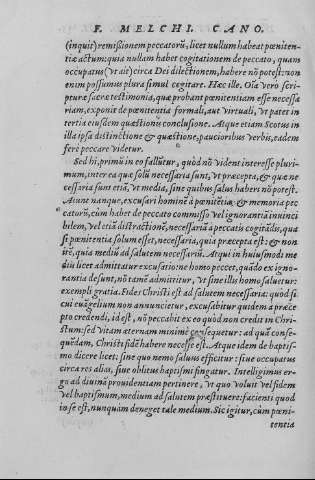 F. MELCHI. CANO.
(inquit) remissionem peccatorũ, licet nullum habeat pœniten-
tiæ actum: quia nullam habet cogitationem de peccato, quum
occupatus (vt ait) circa Dei dilectionem, habere nõ potest: non
enim possumus plura simul cogitare. Hæc ille. Oĩa verò scri-
pturæ sacræ testimonia, quæ probant pœnitentiam esse necessa
riam, exponit de pœnitentia formali, aut virtuali, vt patet in
tertia eiusdem quæstionis conclusione. Atque etiam Scotus in
illa ipsa distinctione & quæstione, paucioribus verbis, eadem
ferè peccare videtur.
Sed hi, primũ in eo fallũtur, quòd nõ vident interesse pluri-
mum, inter ea quæ solũ necessaria sunt, vt præcepta, & quæ ne
cessaria sunt etiã, vt media, sine quibus salus haberi nõ potest.
Aiunt nanque, excusari hominẽ à pœnitẽtia & memoria pec
catorũ, cùm habet de peccato commisso vel ignorantiã inuinci
bilem, vel etiã distractionẽ, necessariã à peccatis cogitãdis, qua
si pœnitẽtia solum esset, necessaria, quia præcepta est: & non
sit, quia mediũ ad salutem necessariũ. Atqui in huiusmodi me
diis licet admittatur excusatio: ne homo peccet, quãdo ex igno-
rantia desunt, nõ tamẽ admittitur, vt sine illis homo saluetur:
exempli gratia. Fides Christi est ad salutem necessaria: quòd si
cui euãgelium non annuncietur, excusabitur quidem à præce
pto credendi, id est, nõ peccabit ex eo quòd non credit in Chri-
stum: sed Vitam æternam minimè cõsequetur: ad quã conse-
quẽdam, Christi fidẽ habere necesse est. Atque idem de baptis-
mo dicere licet: sine quo nemo saluus efficitur: siue occupatus
circa res alias, siue oblitus baptismi fingatur. Intelligimus er-
go ad diuinã prouidentiam pertinere, vt quo voluit vel fidem
vel baptismum, medium ad salutem præstituere: facienti quod
in se est, nunquàm deneget tale medium. Sic igitur, cùm pœni-
tentia